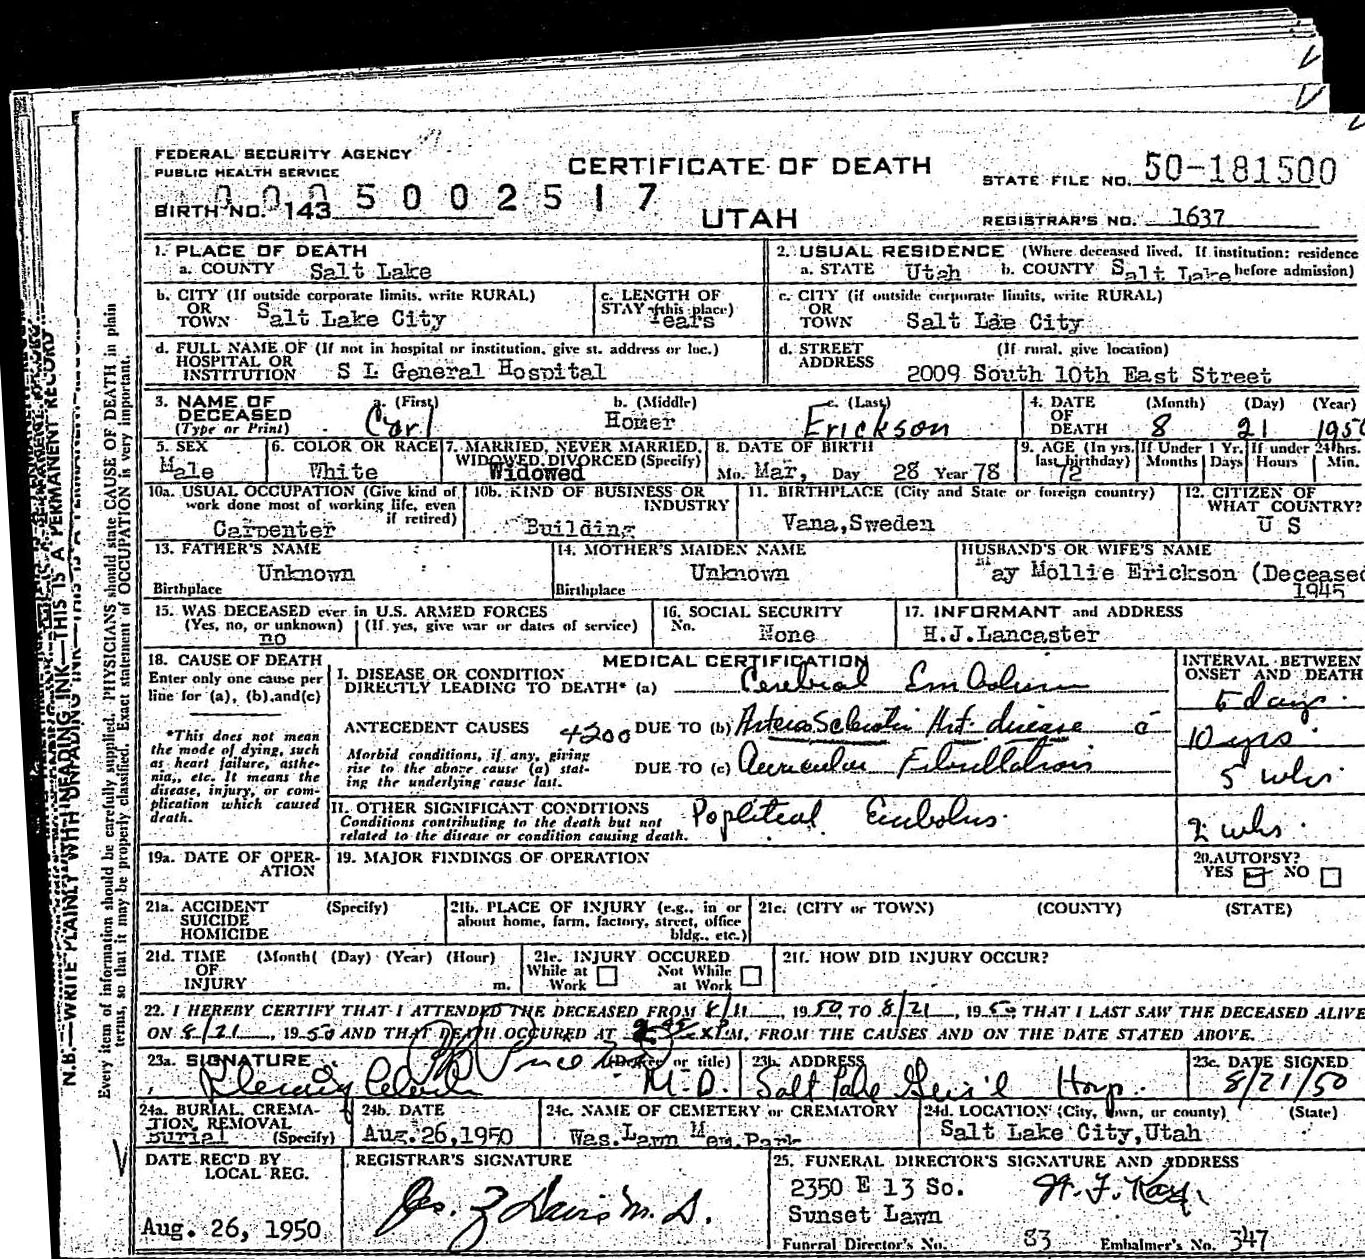 FEDERAL SECURITY AGENCY
PUBLIC HEALTH SERVICE
CERTIFICATE OF DEATH
STATE FILE NO. 50-181500
0005002517
BIRTH NO. 143
UTAH
REGISTRAR'S NO. 1637
1. PLACE OF DEATH
a. COUNTY Salt Lake
2. USUAL RESIDENCE (Where deceased lived. If institution: residence before admission)
a. STATE Utah b. COUNTY Salt Lake
b. CITY (If outside corporate limits, write RURAL)
OR
TOWN Salt Lake City
c. LENGTH OF
STAY (this place)
Years
c. CITY (if outside corporate limits, write RURAL)
OR
TOWN Salt Lae City
d. FULL NAME OF (If not in hospital or institution, give st. address or loc.)
HOSPITAL OR
INSTITUTION S L General Hospital
d. STREET (If rural, give location)
ADDRESS
2009 South 10th East Street
3. NAME OF DECEASED
(Type or Print)
a. (First) b. (Middle) c. (Last)
Carl Homer Erickson
4. DATE OF DEATH
(Month) (Day) (Year)
8 21 1950
5. SEX
Male
6. COLOR OR RACE
White
7. MARRIED, NEVER MARRIED,
WIDOWED, DIVORCED (Specify)
Widowed
8. DATE OF BIRTH
Mo. Mar, Day 28 Year 78
9. AGE (In yrs. last birthday)
72
If Under 1 Yr.
Months Days
If under 24 hrs.
Hours Min.
10a. USUAL OCCUPATION (Give kind of
work done most of working life, even
if retired)
Carpenter
10b. KIND OF BUSINESS OR
INDUSTRY
Building
11. BIRTHPLACE (City and State or foreign country)
Vana,Sweden
12. CITIZEN OF
WHAT COUNTRY?
U S
13. FATHER'S NAME
Unknown
Birthplace
14. MOTHER'S MAIDEN NAME
Unknown
Birthplace
HUSBAND'S OR WIFE'S NAME
May Mollie Erickson (Deceased
1945
15. WAS DECEASED ever in U.S. ARMED FORCES
(Yes, no, or unknown) (If yes, give war or dates of service)
no
16. SOCIAL SECURITY
No. None
17. INFORMANT and ADDRESS
H.J.Lancaster
18. CAUSE OF DEATH
Enter only one cause per
line for (a), (b),and(c)
*This does not mean
the mode of dying, such
as heart failure, asthe-
nia,, etc. It means the
disease, injury, or com-
plication which caused
death.
MEDICAL CERTIFICATION
I. DISEASE OR CONDITION
DIRECTLY LEADING TO DEATH* (a) Cerebral Embolism
ANTECEDENT CAUSES 4200 DUE TO (b) ArterioSclerotic Hrt. disease c̄
Morbid conditions, if any, giving
rise to the above cause (a) stat-
ing the underlying cause last.
DUE TO (c) Auricular Fibrillation
II. OTHER SIGNIFICANT CONDITIONS
Conditions contributing to the death but not
related to the disease or condition causing death.
Popliteal Embolus
INTERVAL BETWEEN
ONSET AND DEATH
5 days
10 yrs.
5 wks.
2 wks.
19a. DATE OF OPER-
ATION
19. MAJOR FINDINGS OF OPERATION
20. AUTOPSY?
YES NO
21a. ACCIDENT (Specify)
SUICIDE
HOMICIDE
21b. PLACE OF INJURY (e.g., in or
about home, farm, factory, street, office
bldg., etc.)
21c. (CITY or TOWN) (COUNTY) (STATE)
21d. TIME (Month( (Day) (Year) (Hour)
OF
INJURY m.
21e. INJURY OCCURED
While at Work Not While at Work
21f. HOW DID INJURY OCCUR?
22. I HEREBY CERTIFY THAT I ATTENDED THE DECEASED FROM 8/11, 1950 TO 8/21, 1950 THAT I LAST SAW THE DECEASED ALIVE
ON 8/21, 1950 AND THAT DEATH OCCURED AT P.M. FROM THE CAUSES AND ON THE DATE STATED ABOVE.
23a. SIGNATURE (Degree or title)
M.D.
23b. ADDRESS
Salt Lake Gen'l Hosp.
23c. DATE SIGNED
8/21/50
24a. BURIAL, CREMA-
TION REMOVAL
Burial (Specify)
24b. DATE
Aug.26,1950
24c. NAME OF CEMETERY or CREMATORY
Was.Lawn Mem.Park
24d. LOCATION (City, town, or county) (State)
Salt Lake City,Utah
DATE REC'D BY
LOCAL REG.
Aug. 26, 1950
REGISTRAR'S SIGNATURE
M.D.
25. FUNERAL DIRECTOR'S SIGNATURE AND ADDRESS
2350 E 13 So.
Sunset Lawn
Funeral Director's No. 83 Embalmer's No. 347
N.B.—WRITE PLAINLY WITH UNFADING INK—THIS IS A PERMANENT RECORD
Every item of information should be carefully supplied. PHYSICIANS should state CAUSE OF DEATH in plain
terms, so that it may be properly classified. Exact statement of OCCUPATION is very important.